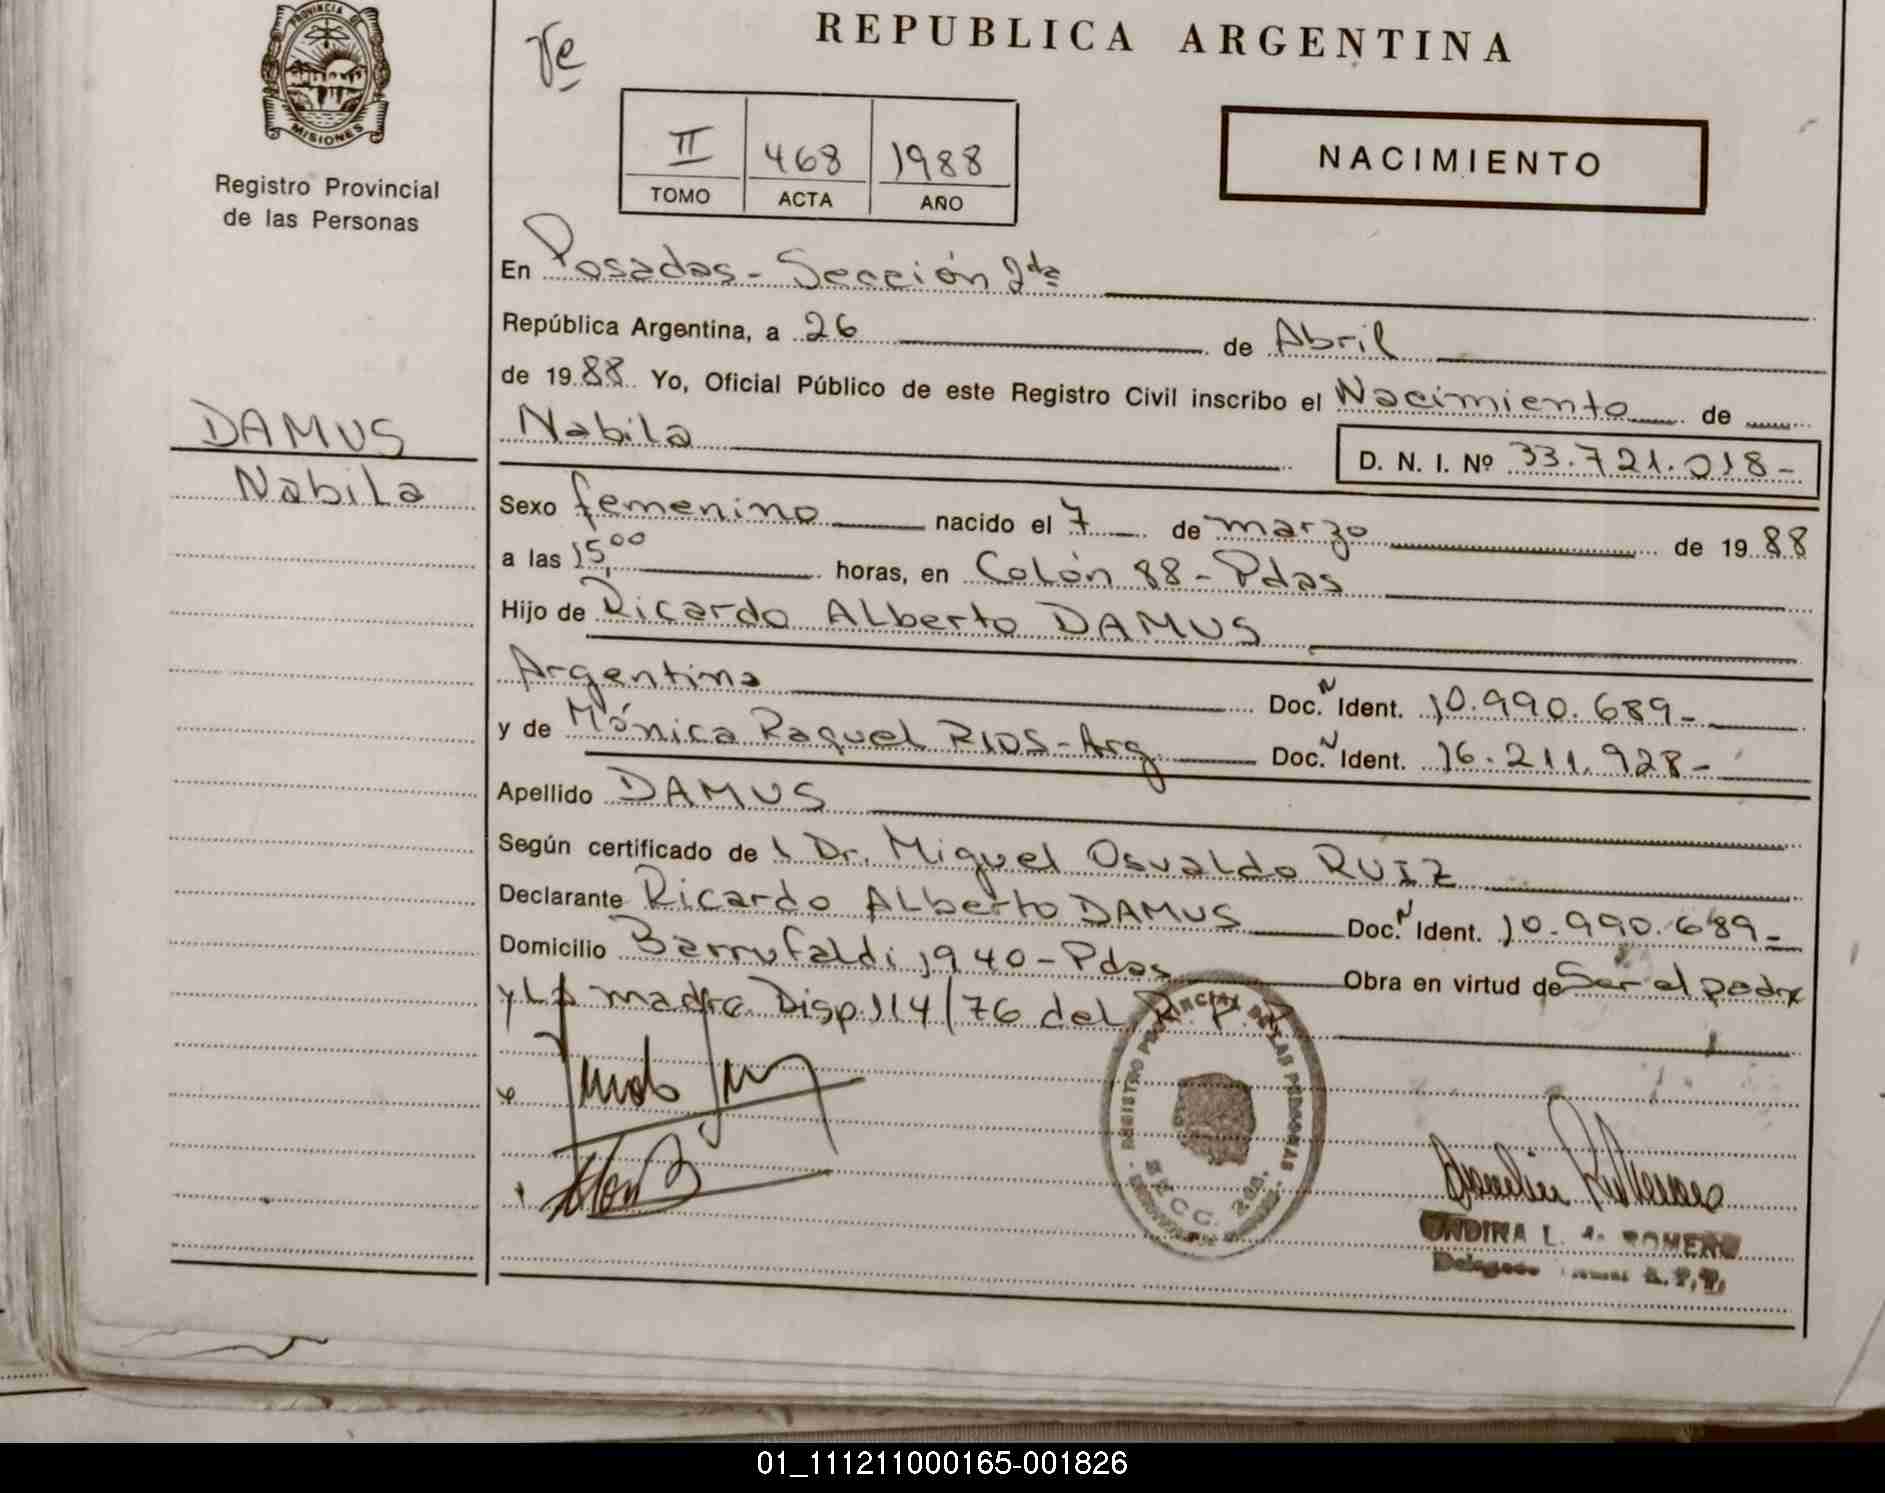 PROVINCIA DE
MISIONES
Registro Provincial
de las Personas
DAMUS
Nabila
REPUBLICA ARGENTINA
II 468 1988
TOMO ACTA AÑO
NACIMIENTO
En Posadas - Sección 2da
República Argentina, a 26 de Abril
de 1988 Yo, Oficial Público de este Registro Civil inscribo el Nacimiento de
Nabila D. N. I. Nº 33.721.018-
Sexo femenino nacido el 7 de marzo de 1988
a las 15,00 horas, en Colón 88 - Pdas
Hijo de Ricardo ALberto DAMUS
Argentino Doc. N Ident. 10.990.689-
y de Mónica Raquel RIOS - Arg. Doc. N Ident. 16.211.928-
Apellido DAMUS
Según certificado de l Dr. Miguel Osvaldo RUIZ
Declarante Ricardo ALberto DAMUS Doc. N Ident. 10.990.689-
Domicilio Barrufaldi 1940 - Pdas Obra en virtud de Ser el padre
y La madre Disp. 114/76 del R. P. P.
REGISTRO PROVINCIAL DE LAS PERSONAS
SECC. 2da.
ONDINA L. de ROMERO
01_111211000165-001826